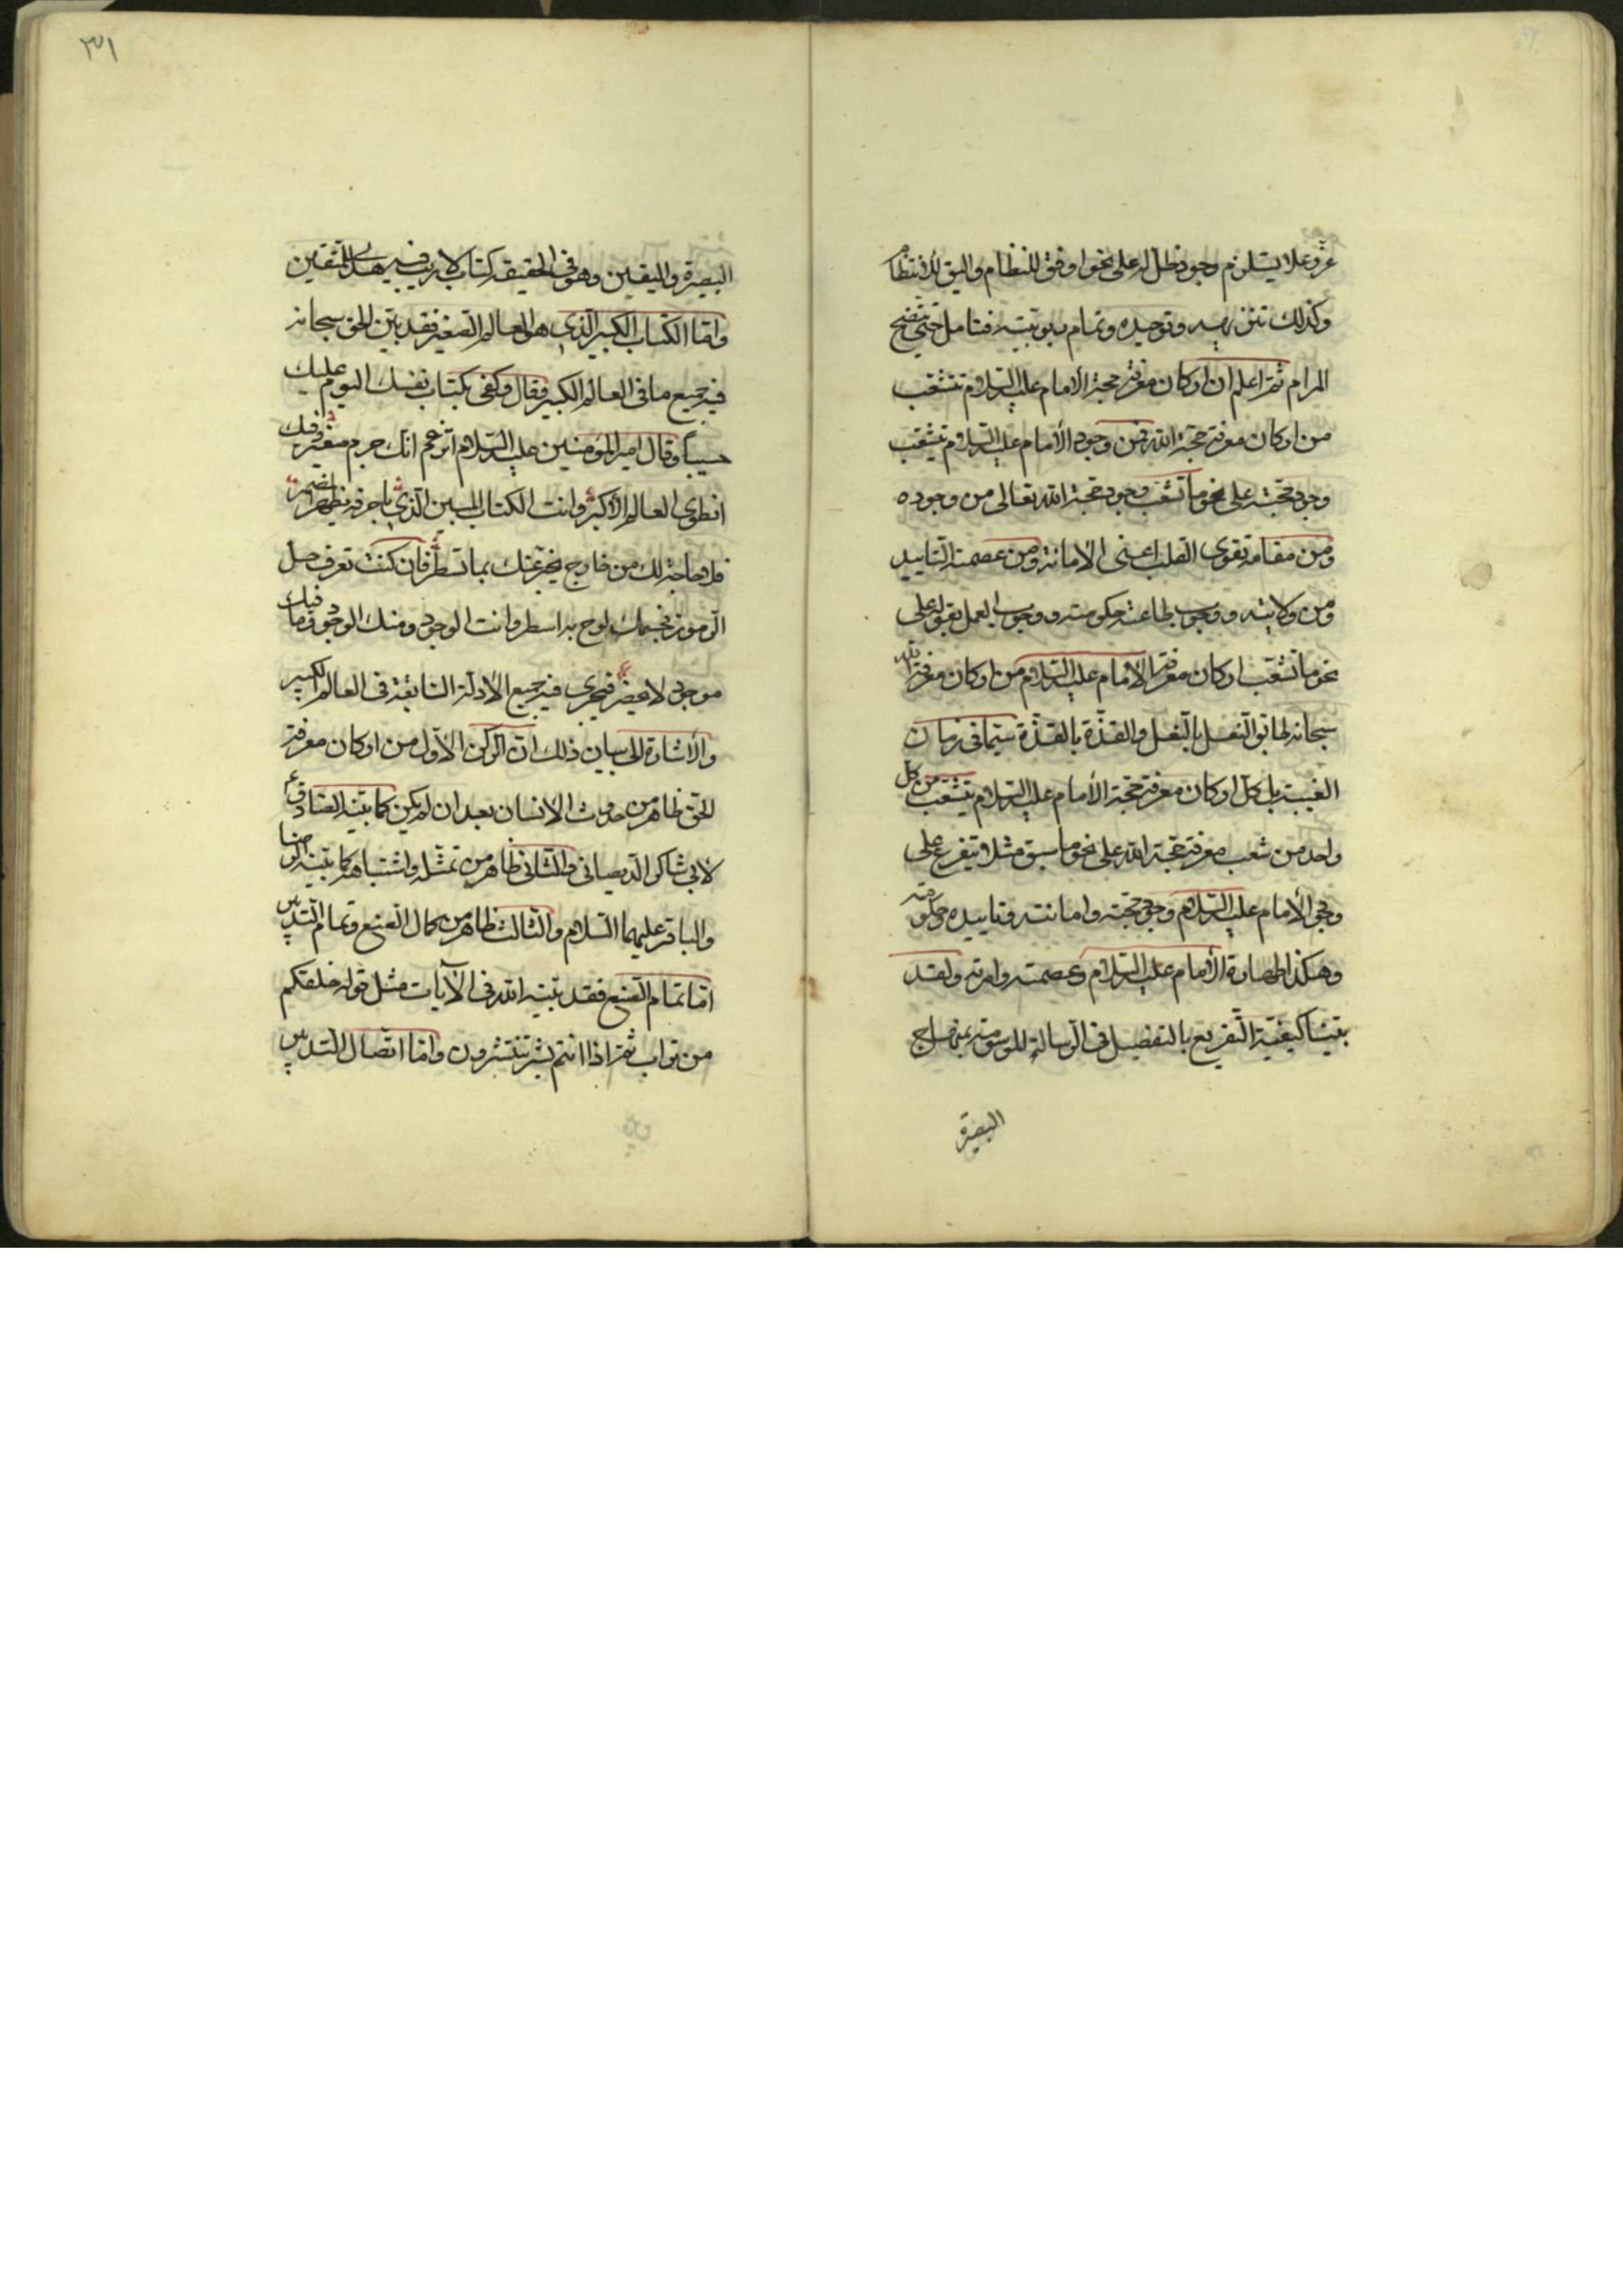 عز وعلا يستلزم وجود ظل له على نحو اوفق للنظام واليق للانتظام
وكذلك تنزيهه وتوحيده وتمام ربوبيته فتامل حتى يتضح
المرام ثم اعلم ان اركان معرفة حجة الامام عليه السلام تتشعب
من اركان معرفة حجة الله فمن وجود الامام عليه السلام يتشعب
وجود حجته على نحو ما تشعب وجود حجة الله تعالى من وجوده
ومن مقام تقوى القلب اعنى الامانة ومن عصمته التاييد
ومن ولايته ووجوب طاعته حكومته ووجوب العمل بقوله على
نحو ما تشعب اركان معرفة الامام عليه السلام من اركان معرفة الله
سبحانه طابق النعل بالنعل والقذة بالقذة سيما فى زمان
الغيبة بل كل اركان معرفة حجة الامام عليه السلام يتشعب من كل
واحد من شعب معرفة حجة الله على نحو ما سبق مثلا يتفرع على
وجود الامام عليه السلام وجود حجته وامانته وتاييده وحكومته
وهكذا طهارة الامام عليه السلام وعصمته وامرته ولقد
بينا كيفية التفريع بالتفصيل فى الرسالة الموسومة بمنهاج
البصيرة
٣١
البصيرة واليقين وهو فى الحقيقة كتاب لا ريب فيه هدى للمتقين
واما الكتاب الكبير الذى هو العالم الصغير فقد بين الحق سبحانه
فيه جميع ما فى العالم الكبير فقال وكفى بكتاب نفسك اليوم عليك
حسيبا وقال امير المؤمنين عليه السلام اتزعم انك جرم صغير وفيك
انطوى العالم الاكبر وانت الكتاب المبين الذى باحرفه يظهر المضمر
فلا حاجة لك من خارج يخبر عنك بما تسطر فان كنت تعرف حل
الرموز فجسمك لوح به اسطر وانت الوجود ومنك الوجود وما فيك
موجود لا يحضر فيجرى فيه جميع الادلة السابقة فى العالم الكبير
والاشارة الى بيان ذلك ان الركن الاول من اركان معرفة
الحق ظاهر من حدوث الانسان بعد ان لم يكن كما بينه الصادق ع
لابى شاكر الديصانى والثانى ظاهر من تمثله واشتباهه كما بينه الرضا
والباقر عليهما السلام والثالث ظاهر من كمال الصنع وتمام التدبير
اما تمام الصنع فقد بينه الله فى الآيات مثل قوله خلقكم
من تراب ثم اذا انتم بشر تنتشرون واما اتصال التدبير